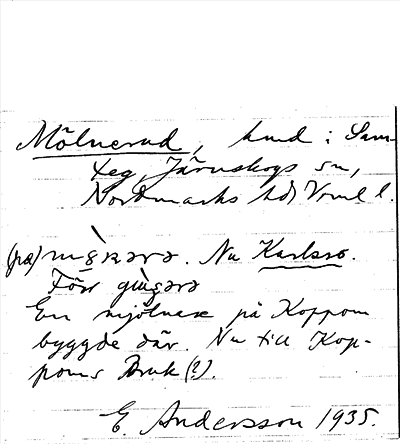 Mölnerud, lund i Sam-
teg, Järnskogs sn,
Nordmarks hd, Vrml l.
(på) . Nu Karlsro.
Förr
En mjölnare på Koppom
byggde där. Nu till Kop-
poms Bruk (?).
E. Andersson 1935.